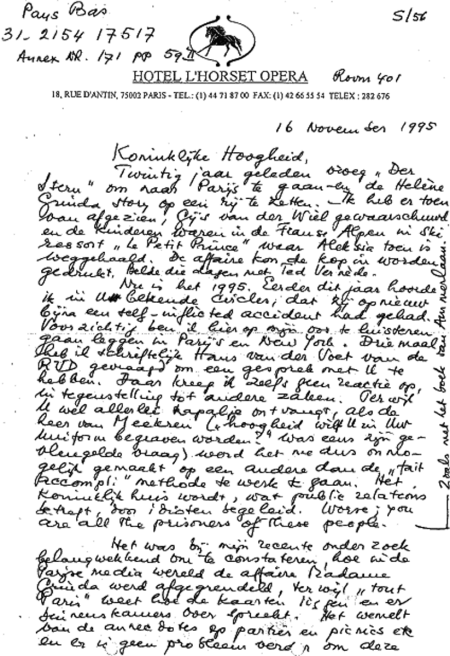 Pays Bas
31-2154 17517
Annex NR. 171 pp 59 II
5/56
HOTEL L'HORSET OPERA
Room 401
18, RUE D'ANTIN, 75002 PARIS - TEL.: (1) 44 71 87 00 FAX: (1) 42 66 55 54 TELEX : 282 676
16 November 1995
Koninklijke Hoogheid,
Twintig jaar geleden vroeg "Der
Stern" om naar Parijs te gaan en de Helène
Grinda story op een rij te zetten. Ik heb er toen
van afgezien, Gijs van der Wiel gewaarschuwd
en de kinderen waren in de Franse Alpen in ski
ressort "Le Petit Prince" waar Aleksia toen is
weggehaald. De affaire kon de kop in worden
gedrukt. Belde die dagen met Ted Vernède.
Nu is het 1995. Eerder dit jaar hoorde
ik in Uw bekende circles, dat U opnieuw
bijna een self-inflicted accident had gehad.
Voorzichtig ben ik hier op mijn oor te luisteren
gaan leggen in Parijs en New York. Driemaal
heb ik schriftelijk Hans van der Voet van de
RVD gevraagd om een gesprek met U te
hebben. Daar kreeg ik zelfs geen reactie op,
in tegenstelling tot andere zaken. Terwijl
U wel allerlei ontvangt, als de
heer van Meekren ("hoogheid wilt U in Uw
uniform begraven worden?" was eens zijn ge-
vraag) werd het me dus onmo-
gelijk gemaakt op een andere dan de "fait
accompli" methode te werk te gaan. Het
koninklijk huis wordt, wat public relations
betreft, door idioten begeleid. Worse, you
are all the prisoners of these people.
Het was bij mijn recente onderzoek
belangwekkend om te constateren, hoe in de
Parijse media wereld de affaire Madame
Grinda werd afgegrendeld, terwijl "tout
Paris" weet hoe de kaarten liggen en er
binnenskamers over spreekt. Het wemelt
van de anecdotes op parties en picnics etc
en er is geen probleem verder om deze
Zoals met het boek van Ammerlaan.